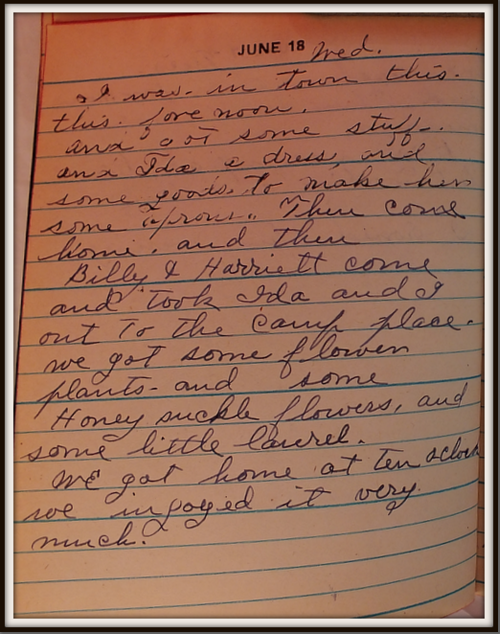 JUNE 18 Wed.
I was in town this.
this. fore noon.
and got some stuff.
and Ida a dress, and
some goods. to make her
some aprons. Then come
home. and then
Billy & Harriett come
and took Ida and I
out to the camp place.
we got some flower
plants - and some
Honey suckle flowers, and
some little laurel.
We got home at ten oclock
we ingoyed it very
much.